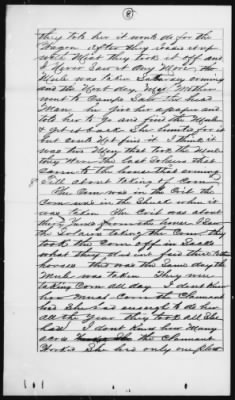 8
they told her it would do for the
Wagon. After they loaded it up
with Meat they took it off and
I Never Saw it any More. the
Mule was taken Saturday evening
and the Next day My Mother
went to Camp Saw the head
Man. he give her a paper and
told her to go and find the Mule
& get it back She hunted for it
but could Not find it. I think it
was this Name that took the Mule
they Were the last Soldiers that
Came to the house that evening
8 Did about taking of Corn
The Corn was in the Crib the
Corn was in the Shuck when it
was taken The Crib was about
the Yards from the house. I saw
the Soldiers taking the Corn, they
took the Corn off in Sacks
what they did not feed there
house this was the Same day the
Mule was taken They were
taking Corn all day I dont know
how Much Corn the Claimant
had She had enough to do her
all the Year they took all She
had. I dont know how Many
acres the Claimant
Worked She had only one plow